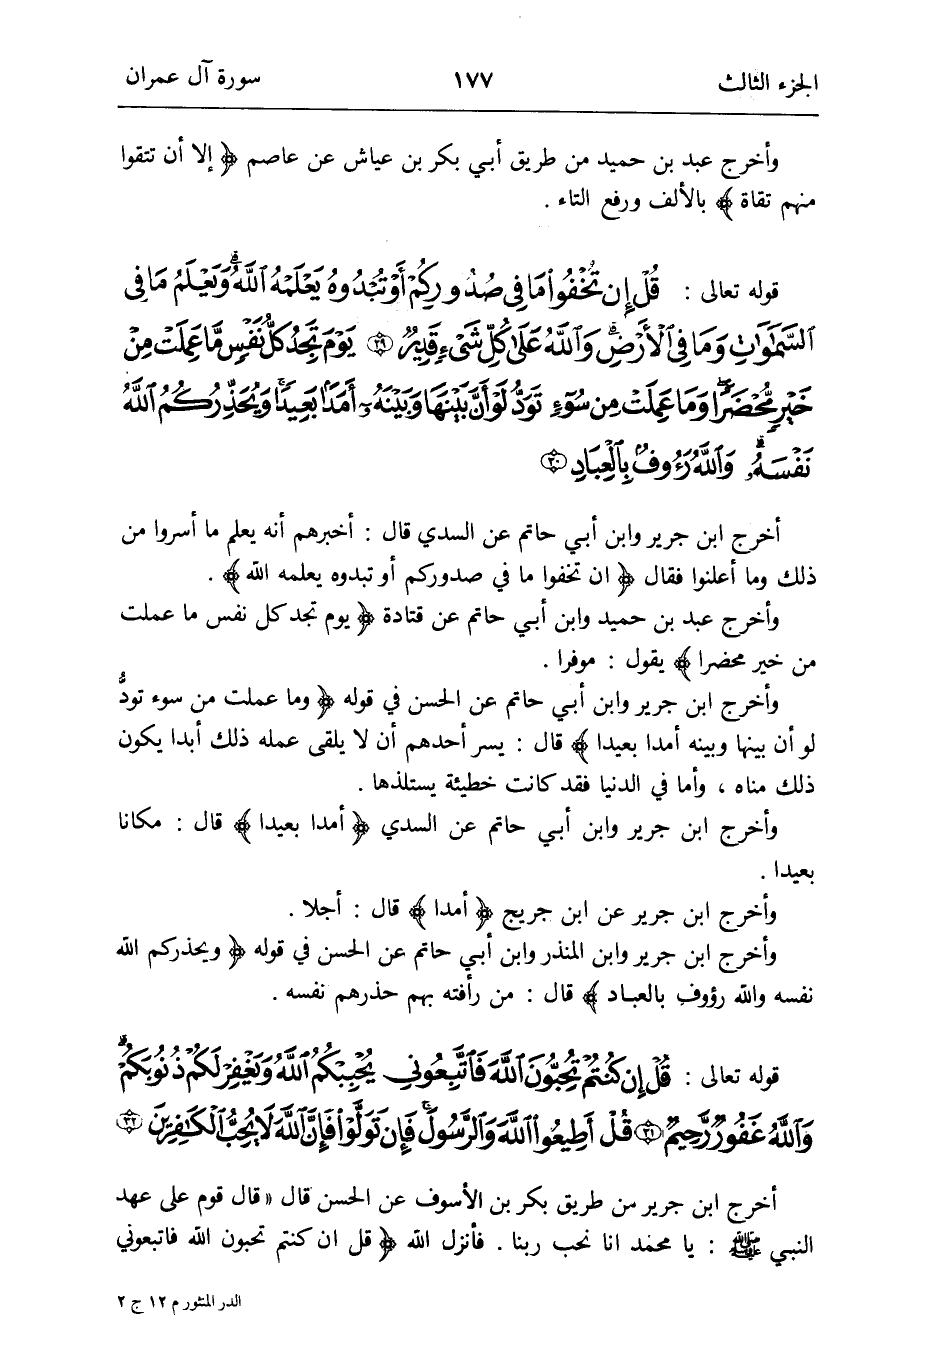 الجزء الثالث ١٧٧ سورة آل عمران
وأخرج عبد بن حميد من طريق أبي بكر بن عياش عن عاصم ﴿ إلا أن تتقوا
منهم تقاة ﴾ بالألف ورفع التاء .
قوله تعالى : قُلْ إِن تُخْفُوا۟ مَا فِى صُدُورِكُمْ أَوْ تُبْدُوهُ يَعْلَمْهُ ٱللَّهُ ۗ وَيَعْلَمُ مَا فِى
ٱلسَّمَٰوَٰتِ وَمَا فِى ٱلْأَرْضِ ۗ وَٱللَّهُ عَلَىٰ كُلِّ شَىْءٍ قَدِيرٌ ﴿٢٩﴾ يَوْمَ تَجِدُ كُلُّ نَفْسٍ مَّا عَمِلَتْ مِنْ
خَيْرٍ مُّحْضَرًا وَمَا عَمِلَتْ مِن سُوٓءٍ تَوَدُّ لَوْ أَنَّ بَيْنَهَا وَبَيْنَهُۥٓ أَمَدًۢا بَعِيدًا ۗ وَيُحَذِّرُكُمُ ٱللَّهُ
نَفْسَهُۥ ۗ وَٱللَّهُ رَءُوفٌۢ بِٱلْعِبَادِ ﴿٣٠﴾
أخرج ابن جرير وابن أبي حاتم عن السدي قال : أخبرهم أنه يعلم ما أسروا من
ذلك وما أعلنوا فقال ﴿ ان تخفوا ما في صدوركم أو تبدوه يعلمه الله ﴾ .
وأخرج عبد بن حميد وابن أبي حاتم عن قتادة ﴿ يوم تجد كل نفس ما عملت
من خير محضرا ﴾ يقول : موفرا .
وأخرج ابن جرير وابن أبي حاتم عن الحسن في قوله ﴿ وما عملت من سوء تودُّ
لو أن بينها وبينه أمدا بعيدا ﴾ قال : يسر أحدهم أن لا يلقى عمله ذلك أبدا يكون
ذلك مناه ، وأما في الدنيا فقد كانت خطيئة يستلذها .
وأخرج ابن جرير وابن أبي حاتم عن السدي ﴿ أمدا بعيدا ﴾ قال : مكانا
بعيدا .
وأخرج ابن جرير عن ابن جريج ﴿ أمدا ﴾ قال : أجلا .
وأخرج ابن جرير وابن المنذر وابن أبي حاتم عن الحسن في قوله ﴿ ويحذركم الله
نفسه والله رؤوف بالعباد ﴾ قال : من رأفته بهم حذرهم نفسه .
قوله تعالى : قُلْ إِن كُنتُمْ تُحِبُّونَ ٱللَّهَ فَٱتَّبِعُونِى يُحْبِبْكُمُ ٱللَّهُ وَيَغْفِرْ لَكُمْ ذُنُوبَكُمْ ۗ
وَٱللَّهُ غَفُورٌ رَّحِيمٌ ﴿٣١﴾ قُلْ أَطِيعُوا۟ ٱللَّهَ وَٱلرَّسُولَ ۖ فَإِن تَوَلَّوْا۟ فَإِنَّ ٱللَّهَ لَا يُحِبُّ ٱلْكَٰفِرِينَ ﴿٣٢﴾
أخرج ابن جرير من طريق بكر بن الأسوف عن الحسن قال « قال قوم على عهد
النبي ﷺ : يا محمد انا نحب ربنا . فأنزل الله ﴿ قل ان كنتم تحبون الله فاتبعوني
الدر المنثور م ١٢ ج ٢